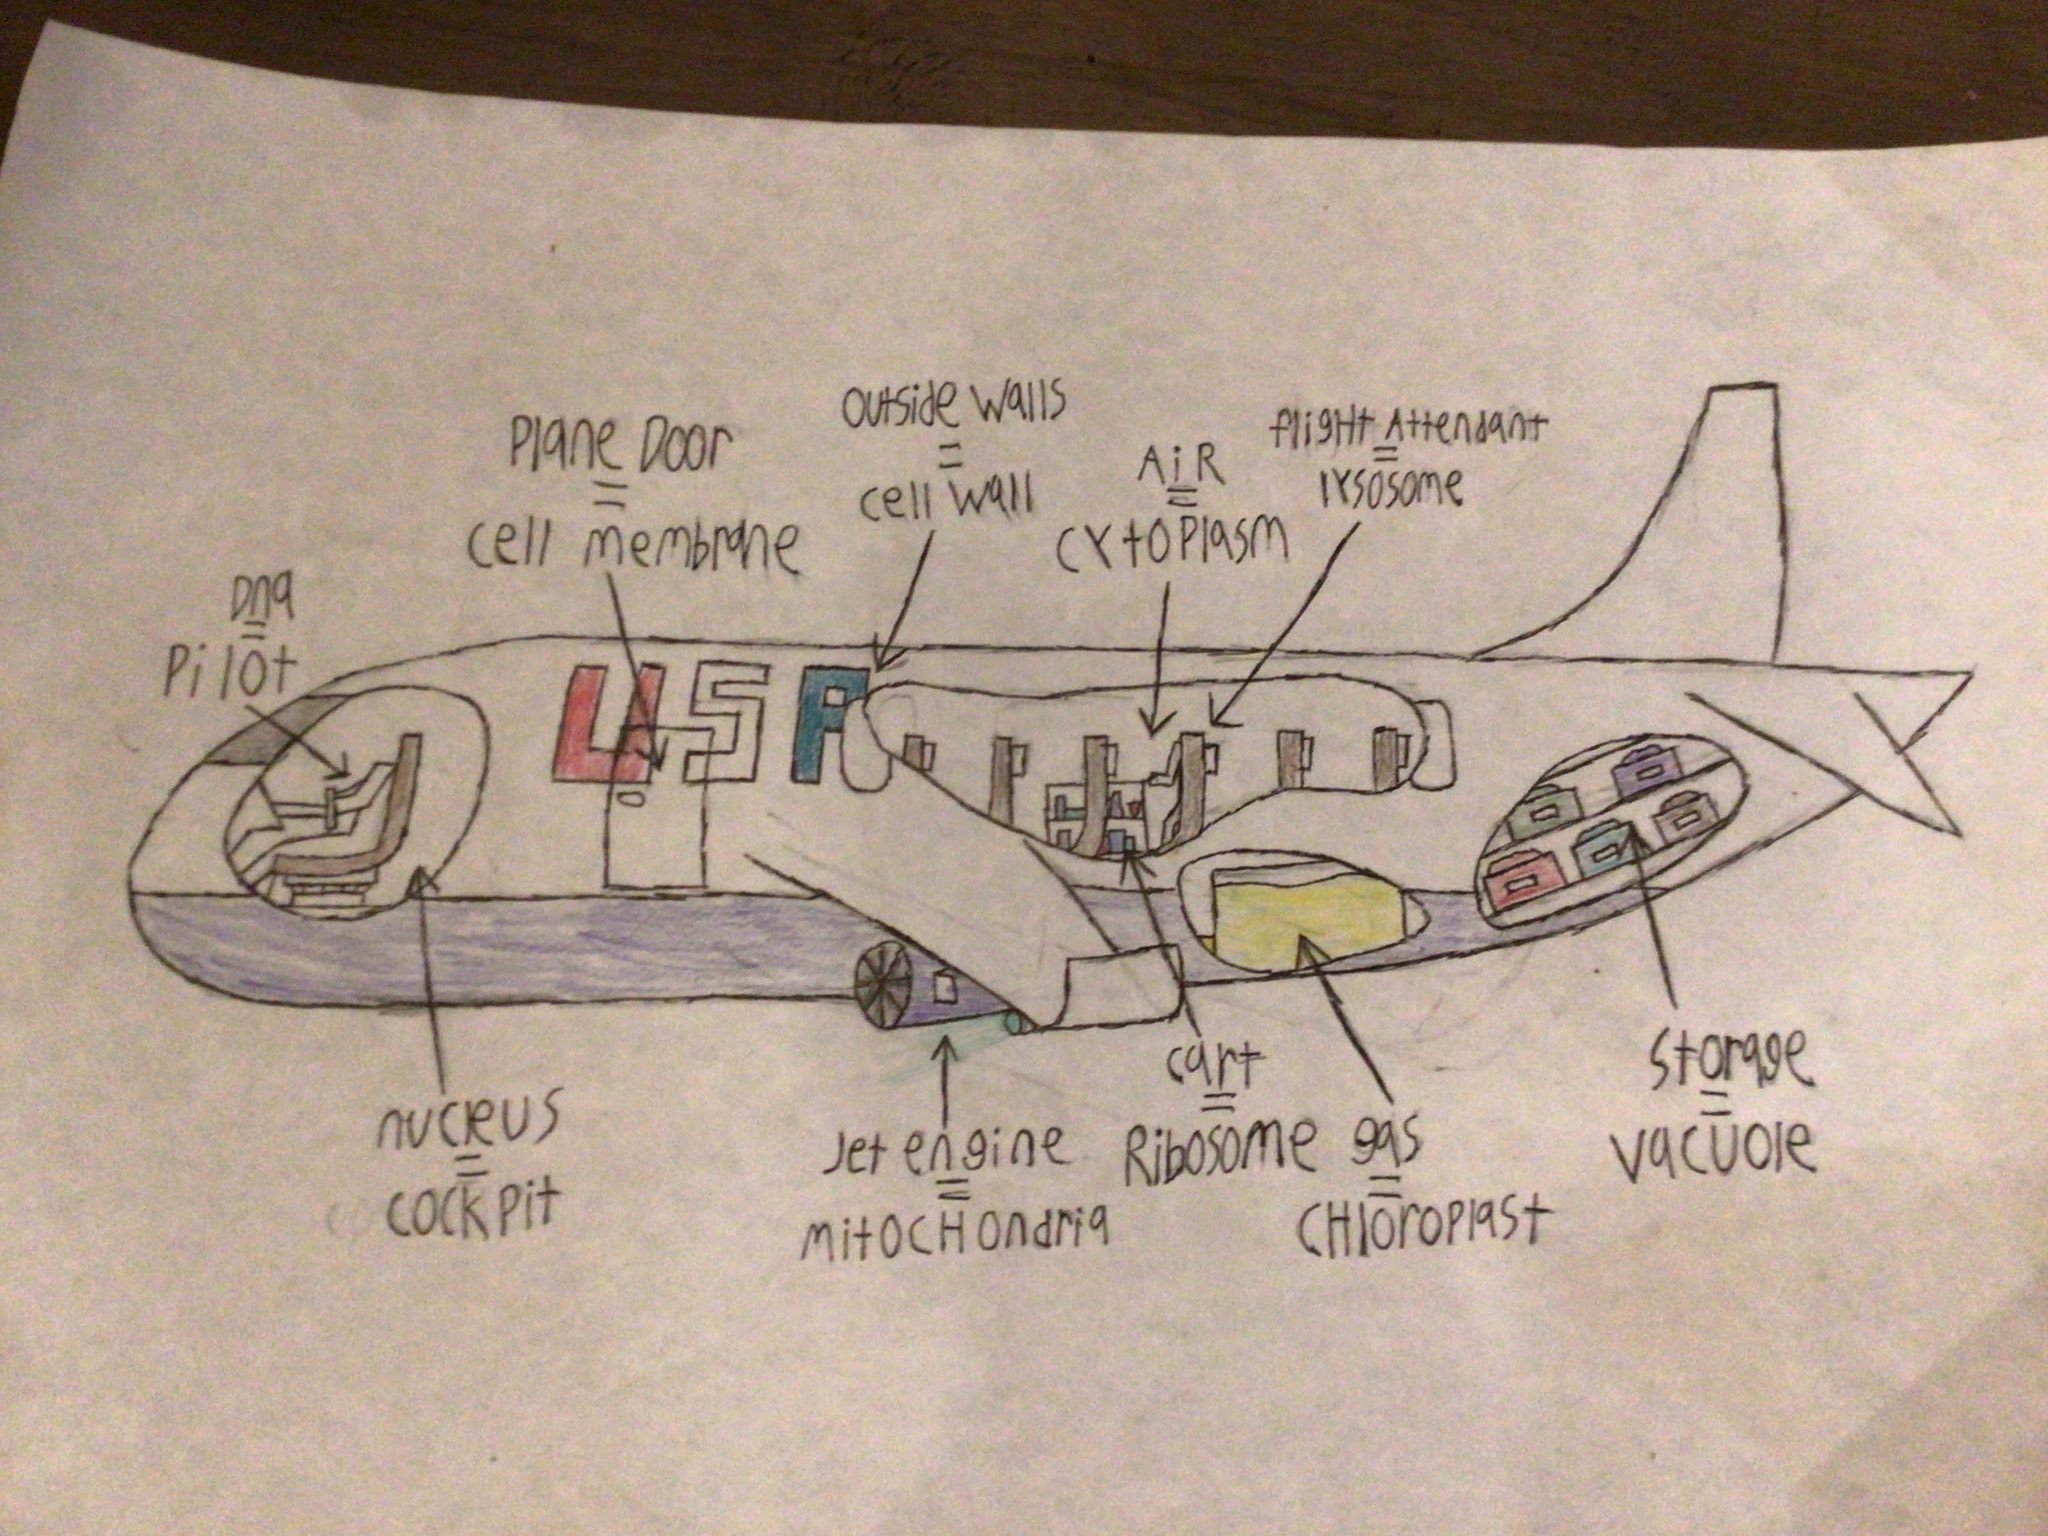 Outside walls
=
cell wall
Plane Door
=
cell membrane
AiR
=
cytoplasm
flight Attendant
=
lysosome
Dna
=
Pilot
USA
nucleus
=
cockpit
Jet engine
=
mitochondria
cart
=
Ribosome
gas
=
Chloroplast
Storage
=
vacuole